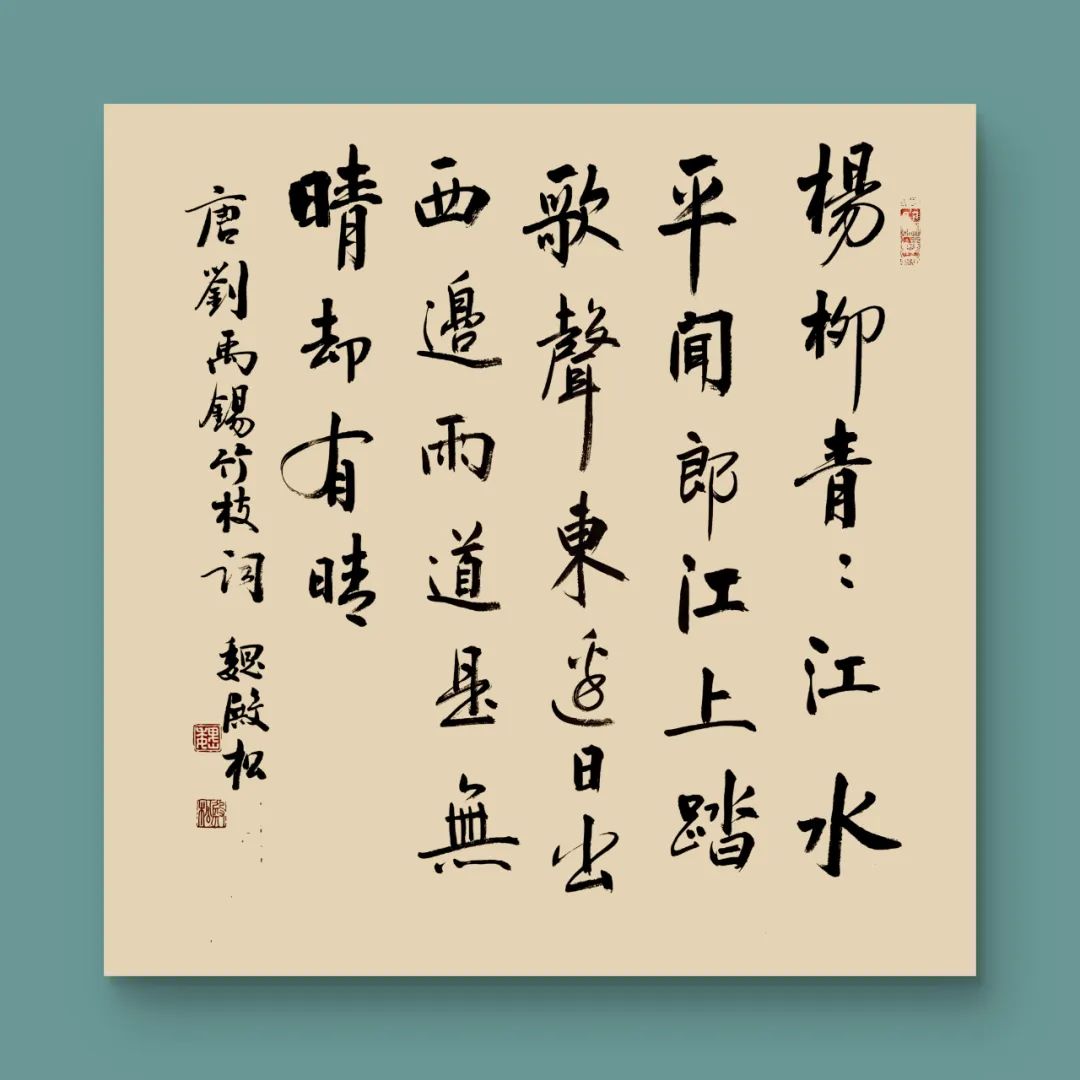 楊柳青〻江水
平聞郎江上踏
歌聲東邊日出
西邊雨道是無
晴却有晴
唐劉禹錫竹枝詞 魏殿松
魏